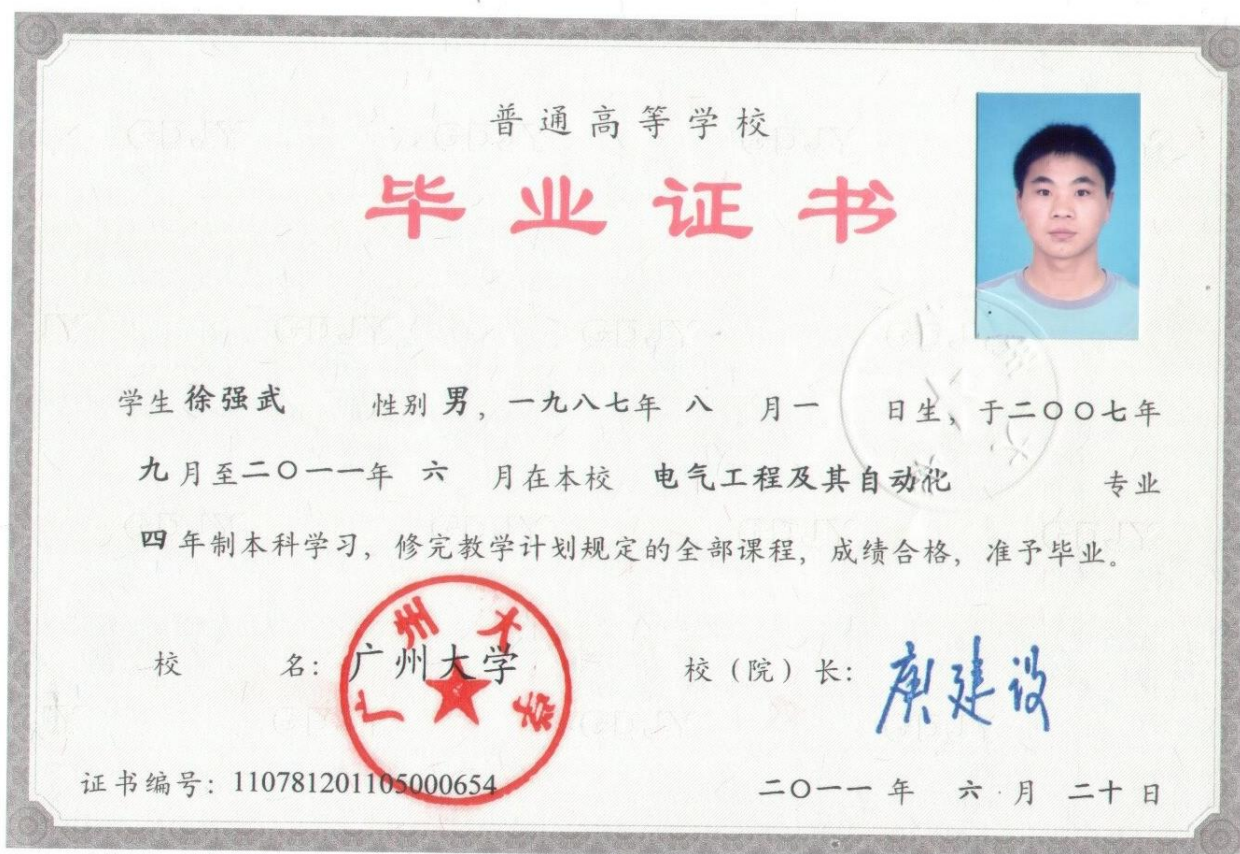 普通高等学校
毕业证书
学生 徐强武 性别 男，一九八七年 八 月一 日生，于二〇〇七年
九月至二〇一一年 六 月在本校 电气工程及其自动化 专业
四年制本科学习，修完教学计划规定的全部课程，成绩合格，准予毕业。
校 名：广州大学
广州大学
校（院）长：庾建设
证书编号：110781201105000654
二〇一一年 六 月 二十 日